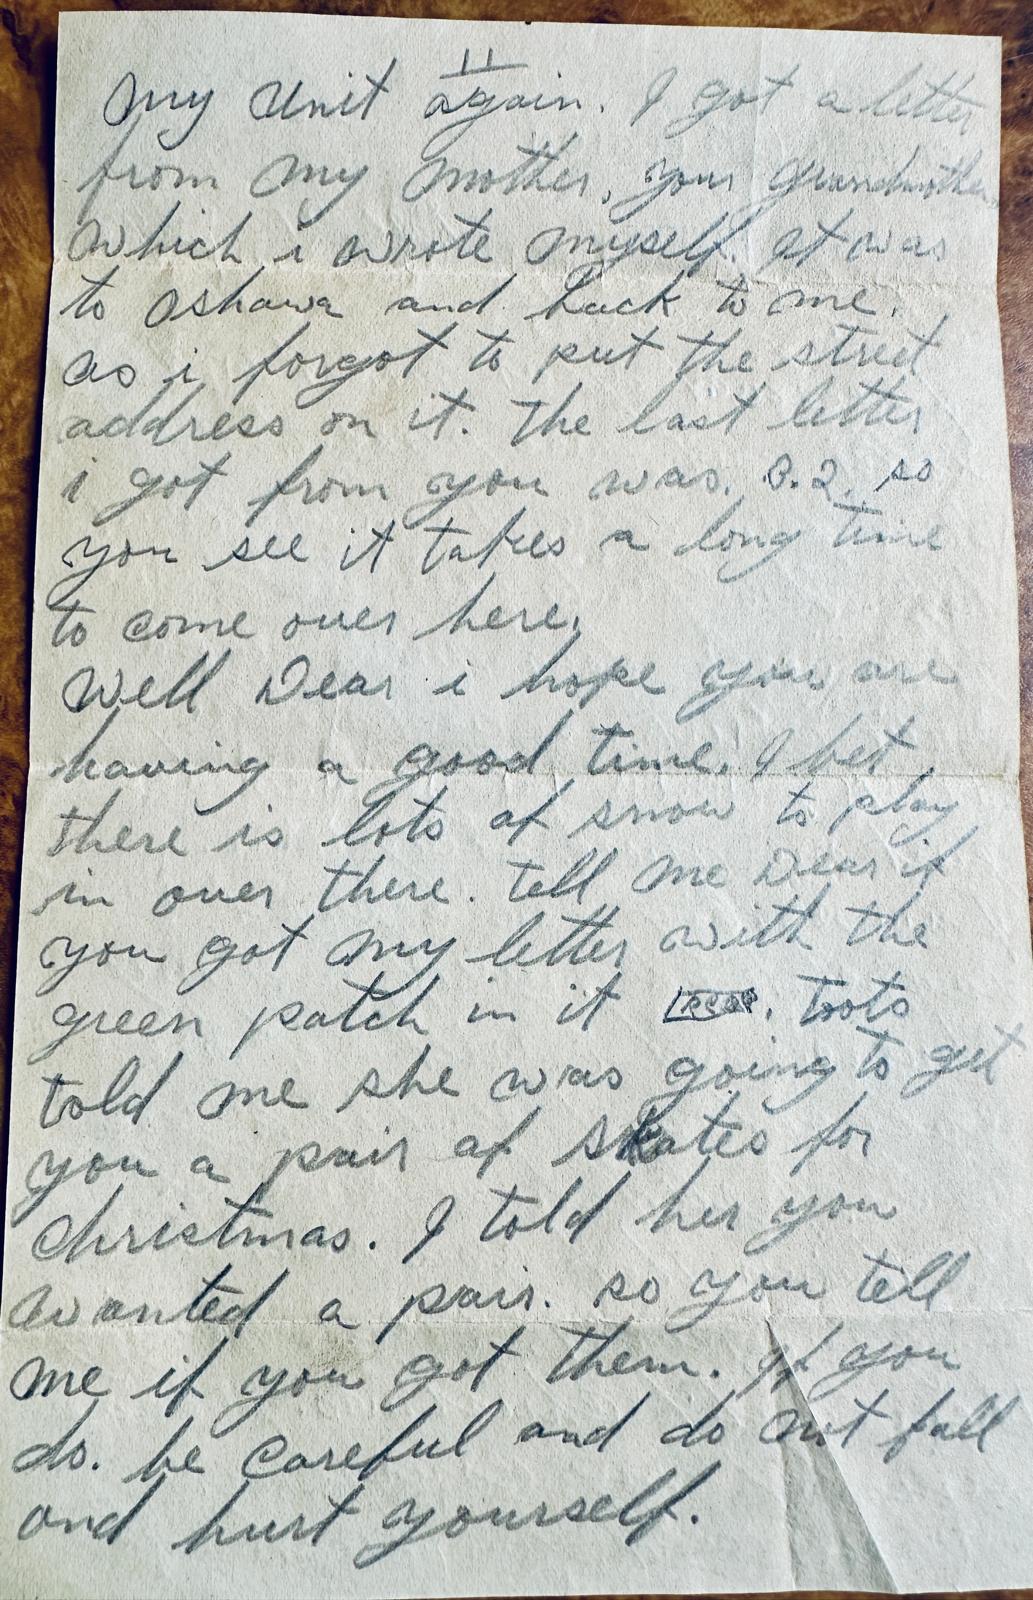 11
my unit again. I got a letter
from my mother, your grandmother,
which i wrote myself. it was
to Oshawa and back to me.
as i forgot to put the street
address on it. the last letter
i got from you was. 2. so
you see it takes a long time
to come over here.
Well Dear i hope you are
having a good time. I bet
there is lots of snow to play
in over there. tell me Dear if
you got my letter with the
green patch in it . toots
told me she was going to get
you a pair of skates for
Christmas. I told her you
wanted a pair. so you tell
me if you got them. If you
do. be careful and do not fall
and hurt yourself.